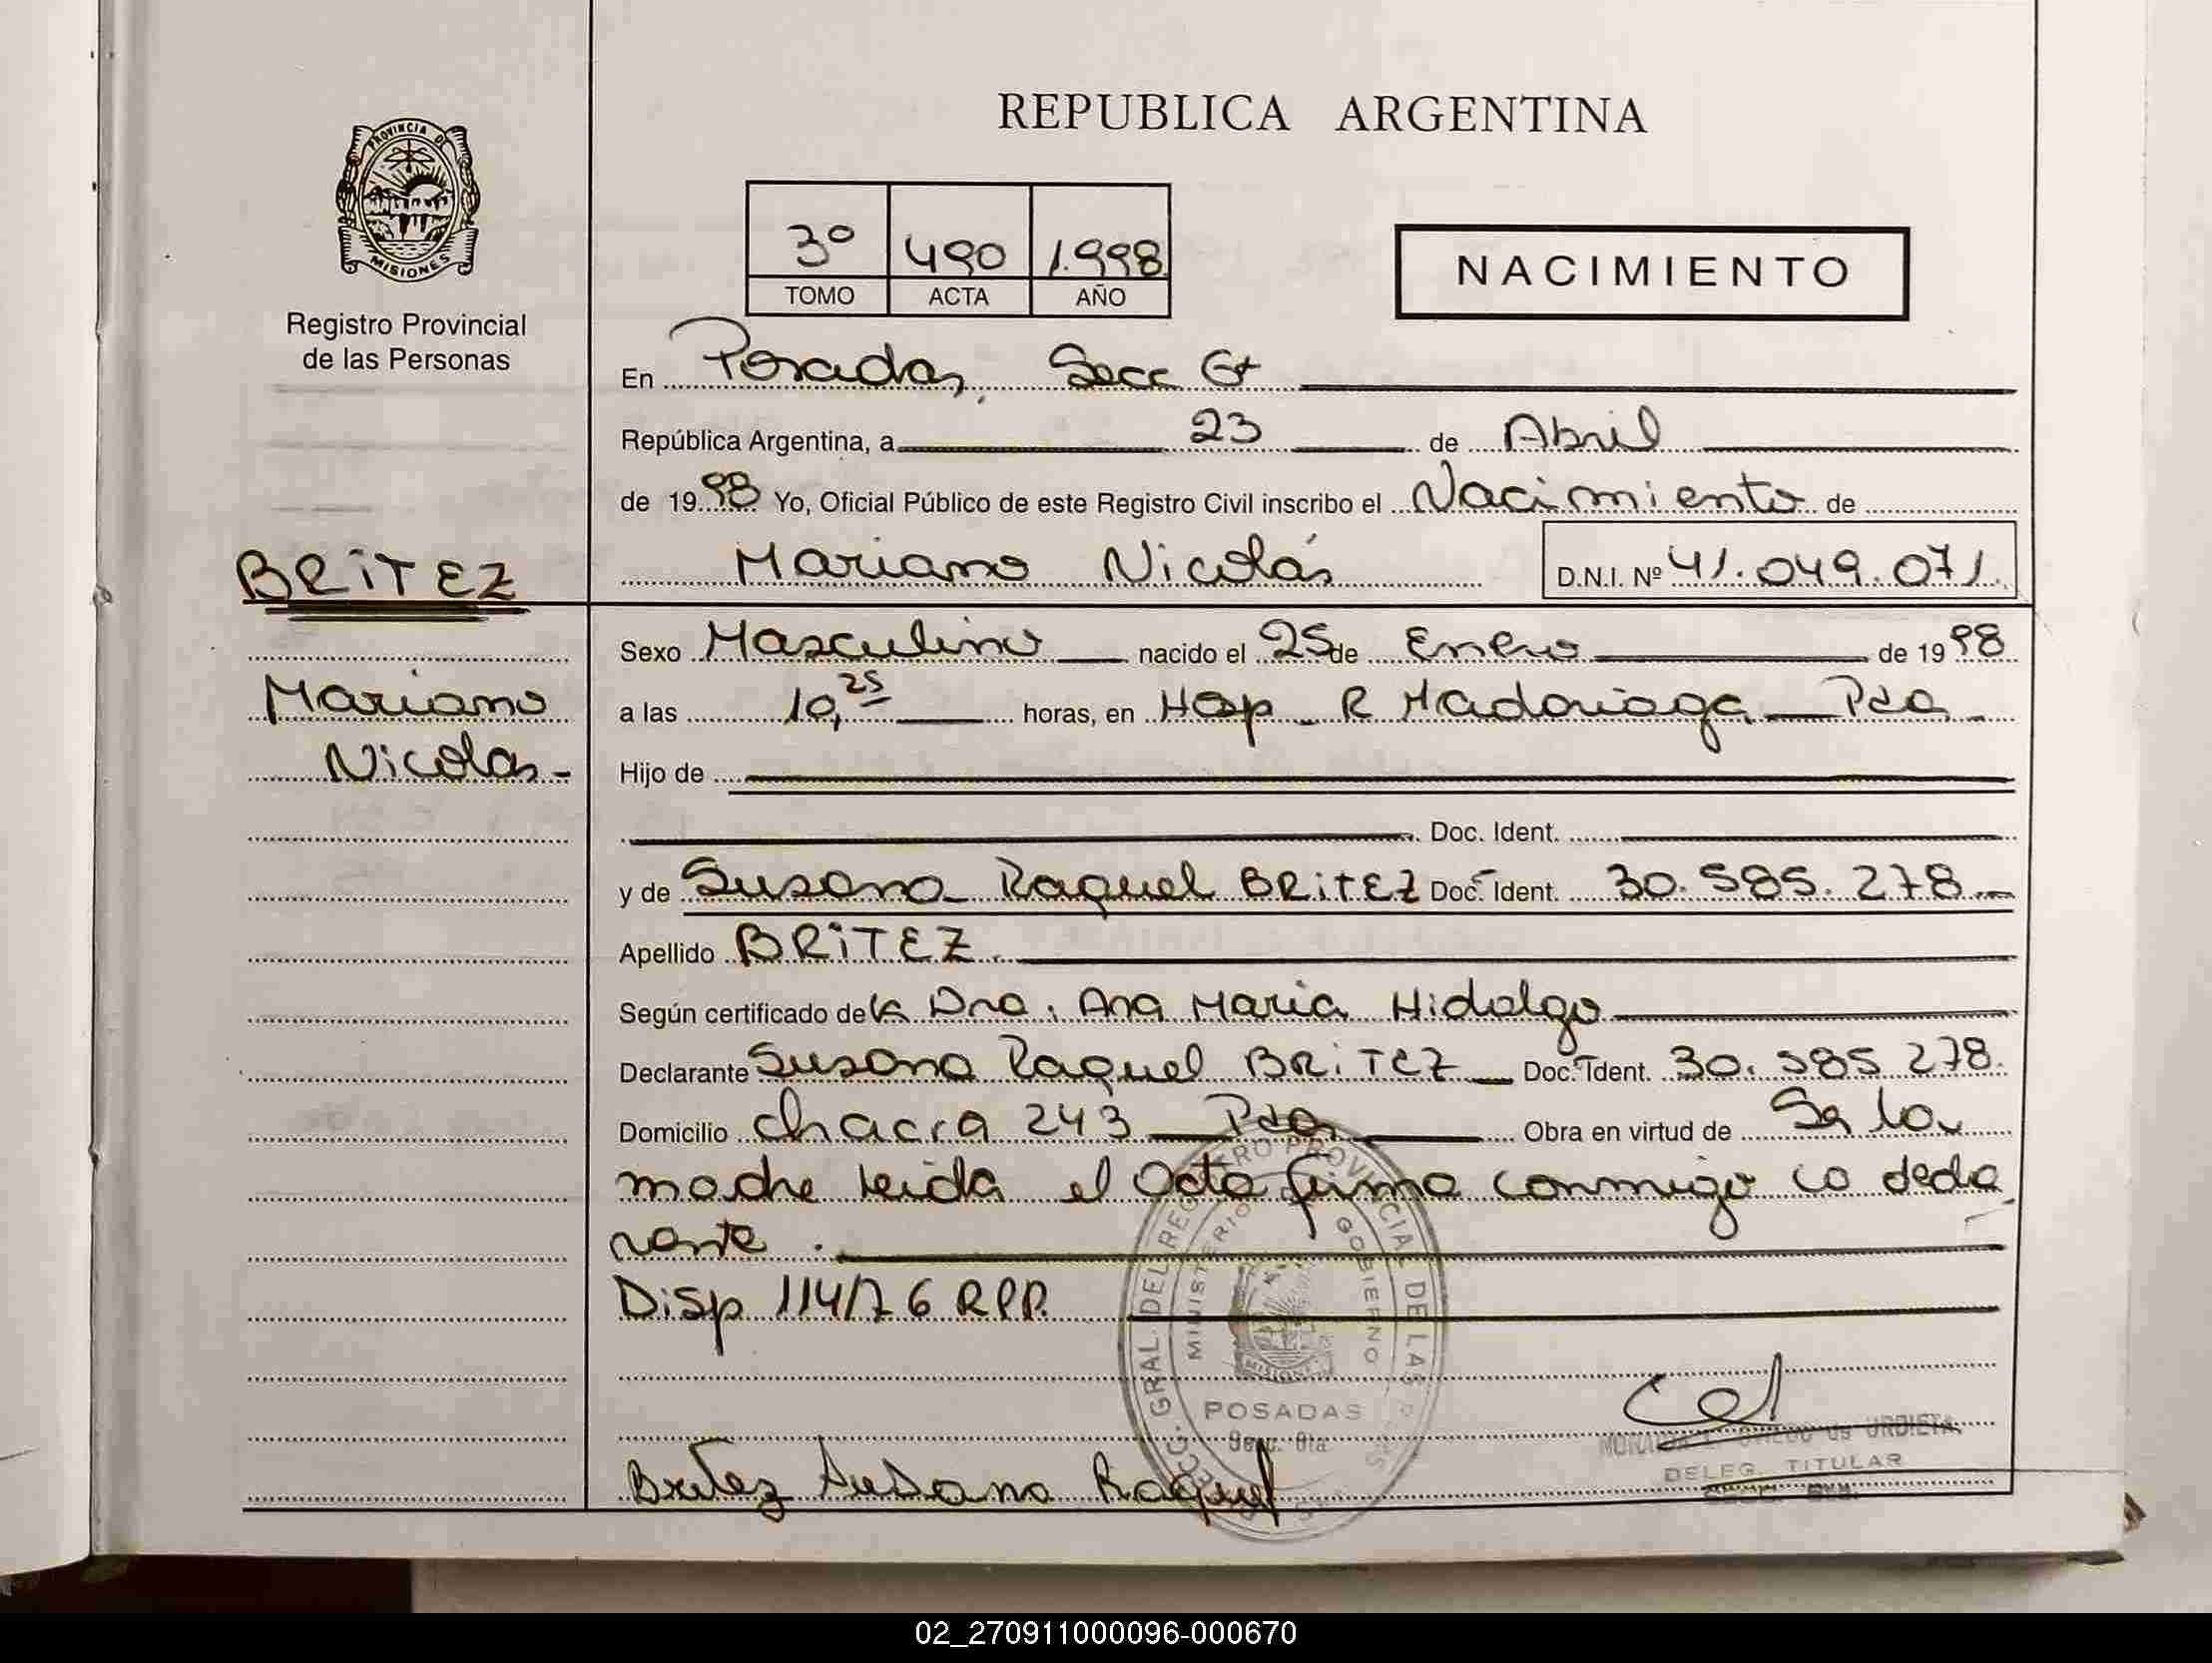 REPUBLICA ARGENTINA
PROVINCIA DE
MISIONES
Registro Provincial
de las Personas
3º 490 1.998
TOMO ACTA AÑO
NACIMIENTO
En Posadas, Secc 6ta
República Argentina, a 23 de Abril
de 1998 Yo, Oficial Público de este Registro Civil inscribo el Nacimiento de
BRITEZ
Mariano Nicolás D.N.I. Nº 41.049.071.
Sexo Masculino nacido el 25 de Enero de 1998
Mariano
a las 10,25 horas, en Hosp R Madariaga Pdas
Nicolas-
Hijo de
Doc. Ident.
y de Susana Raquel BRITEZ Doc. Ident. 30.585.278
Apellido BRITEZ
Según certificado de la Dra. Ana Maria Hidalgo
Declarante Susana Raquel BRITEZ Doc. Ident. 30.585.278.
Domicilio chacra 243 Pdas Obra en virtud de Ser la
madre leida el Acta firma conmigo la decla
rante.
Disp 114/76 RPP.
GRAL. DEL REGISTRO PROVINCIAL DE LAS
MINISTERIO GOBIERNO
MISIONES
POSADAS
Secc. 6ta
URDIETA
DELEG. TITULAR
Britez Susana Raquel
02_270911000096-000670